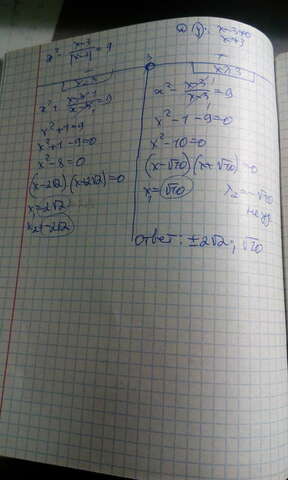 x² - (x-3)/|x-3| = 9
x-3≠0
x≠3
x<3
x² - (x-3)/(-(x-3)) = 9
x²+1=9
x²+1-9=0
x²-8=0
(x-2√2)(x+2√2)=0
x₁=2√2
x₂=-2√2
x>3
x² - (x-3)/(x-3) = 9
x²-1-9=0
x²-10=0
(x-√10)(x+√10)=0
x₁=√10 x₂=-√10
Ответ: ±2√2; √10